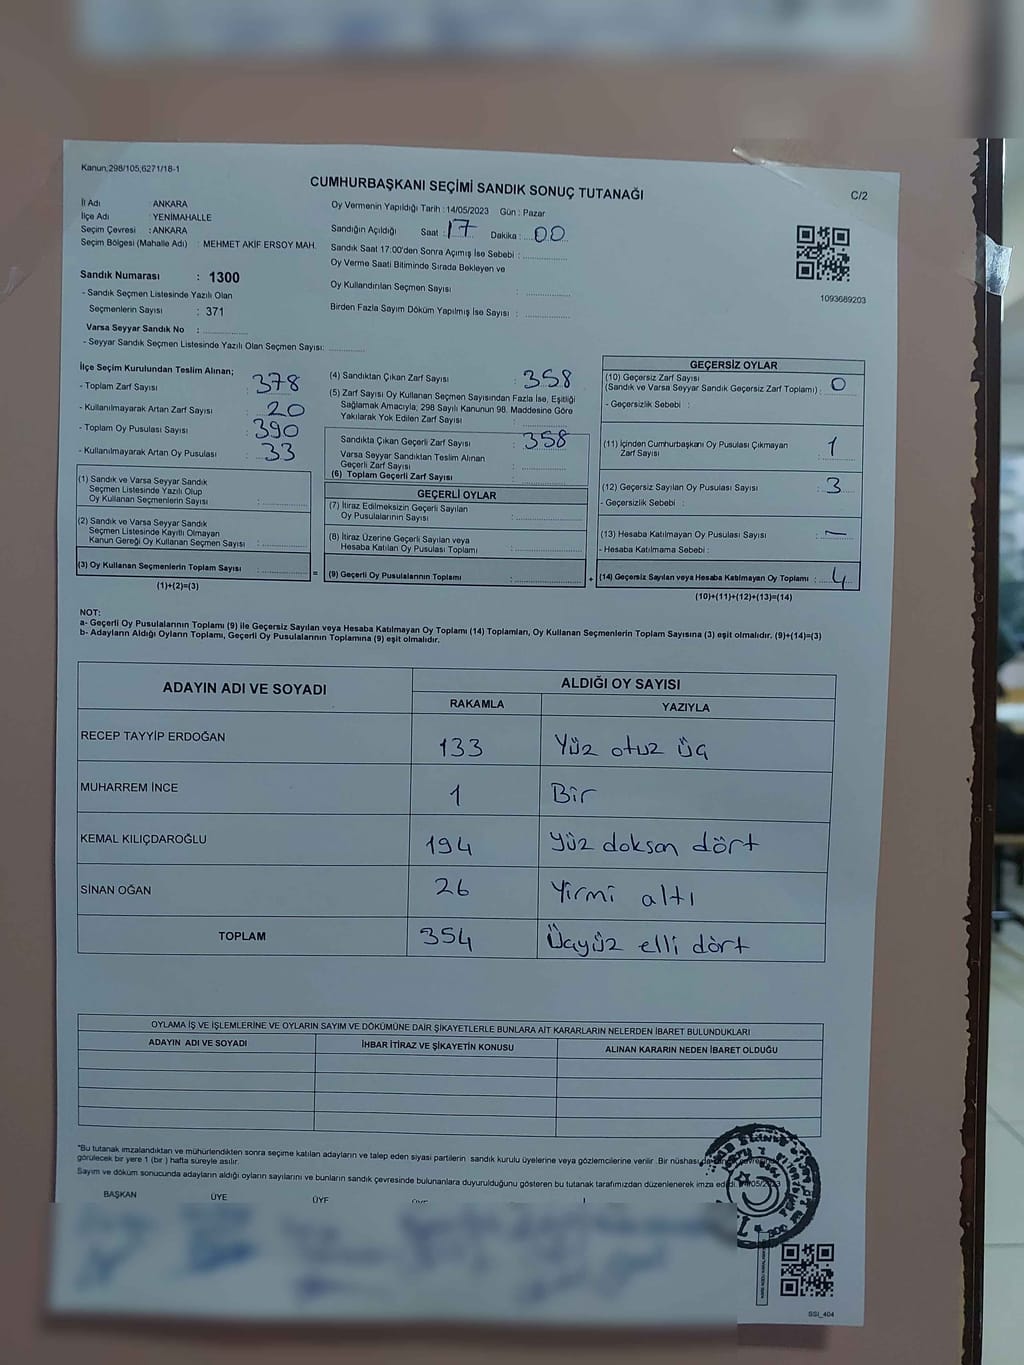 Kanun;298/105;6271/18-1
CUMHURBAŞKANI SEÇİMİ SANDIK SONUÇ TUTANAĞI
C/2
İl Adı : ANKARA
İlçe Adı : YENİMAHALLE
Seçim Çevresi : ANKARA
Seçim Bölgesi (Mahalle Adı) : MEHMET AKİF ERSOY MAH.
Sandık Numarası : 1300
- Sandık Seçmen Listesinde Yazılı Olan
Seçmenlerin Sayısı : 371
Varsa Seyyar Sandık No :
- Seyyar Sandık Seçmen Listesinde Yazılı Olan Seçmen Sayısı:
Oy Vermenin Yapıldığı Tarih : 14/05/2023 Gün : Pazar
Sandığın Açıldığı Saat : 17 Dakika : 00
Sandık Saat 17:00'den Sonra Açımış İse Sebebi :
Oy Verme Saati Bitiminde Sırada Bekleyen ve
Oy Kullandırılan Seçmen Sayısı :
Birden Fazla Sayım Döküm Yapılmış İse Sayısı :
1093689203
İlçe Seçim Kurulundan Teslim Alınan;
- Toplam Zarf Sayısı : 378
- Kullanılmayarak Artan Zarf Sayısı : 20
- Toplam Oy Pusulası Sayısı : 390
- Kullanılmayarak Artan Oy Pusulası : 33
(1) Sandık ve Varsa Seyyar Sandık
Seçmen Listesinde Yazılı Olup
Oy Kullanan Seçmenlerin Sayısı :
(2) Sandık ve Varsa Seyyar Sandık
Seçmen Listesinde Kayıtlı Olmayan
Kanun Gereği Oy Kullanan Seçmen Sayısı :
(3) Oy Kullanan Seçmenlerin Toplam Sayısı :
(1)+(2)=(3)
=
(4) Sandıktan Çıkan Zarf Sayısı : 358
(5) Zarf Sayısı Oy Kullanan Seçmen Sayısından Fazla İse, Eşitliği
Sağlamak Amacıyla; 298 Sayılı Kanunun 98. Maddesine Göre
Yakılarak Yok Edilen Zarf Sayısı :
Sandıkta Çıkan Geçerli Zarf Sayısı : 358
Varsa Seyyar Sandıktan Teslim Alınan
Geçerli Zarf Sayısı :
(6) Toplam Geçerli Zarf Sayısı :
GEÇERLİ OYLAR
(7) İtiraz Edilmeksizin Geçerli Sayılan
Oy Pusulalarının Sayısı :
(8) İtiraz Üzerine Geçerli Sayılan veya
Hesaba Katılan Oy Pusulası Toplamı :
(9) Geçerli Oy Pusulalarının Toplamı :
+
GEÇERSİZ OYLAR
(10) Geçersiz Zarf Sayısı
(Sandık ve Varsa Seyyar Sandık Geçersiz Zarf Toplamı) : 0
- Geçersizlik Sebebi :
(11) İçinden Cumhurbaşkanı Oy Pusulası Çıkmayan
Zarf Sayısı : 1
(12) Geçersiz Sayılan Oy Pusulası Sayısı : 3
- Geçersizlik Sebebi :
(13) Hesaba Katılmayan Oy Pusulası Sayısı : —
- Hesaba Katılmama Sebebi :
(14) Geçersiz Sayılan veya Hesaba Katılmayan Oy Toplamı : 4
(10)+(11)+(12)+(13)=(14)
NOT:
a- Geçerli Oy Pusulalarının Toplamı (9) ile Geçersiz Sayılan veya Hesaba Katılmayan Oy Toplamı (14) Toplamları, Oy Kullanan Seçmenlerin Toplam Sayısına (3) eşit olmalıdır. (9)+(14)=(3)
b- Adayların Aldığı Oyların Toplamı, Geçerli Oy Pusulalarının Toplamına (9) eşit olmalıdır.
ADAYIN ADI VE SOYADI
ALDIĞI OY SAYISI
RAKAMLA YAZIYLA
RECEP TAYYİP ERDOĞAN 133 Yüz otuz üç
MUHARREM İNCE 1 Bir
KEMAL KILIÇDAROĞLU 194 Yüz doksan dört
SİNAN OĞAN 26 Yirmi altı
TOPLAM 354 Üçyüz elli dört
OYLAMA İŞ VE İŞLEMLERİNE VE OYLARIN SAYIM VE DÖKÜMÜNE DAİR ŞİKAYETLERLE BUNLARA AİT KARARLARIN NELERDEN İBARET BULUNDUKLARI
ADAYIN ADI VE SOYADI İHBAR İTİRAZ VE ŞİKAYETİN KONUSU ALINAN KARARIN NEDEN İBARET OLDUĞU
*Bu tutanak imzalandıktan ve mühürlendikten sonra seçime katılan adayların ve talep eden siyasi partilerin sandık kurulu üyelerine veya gözlemcilerine verilir. Bir nüshası
görülecek bir yere 1 (bir) hafta süreyle asılır.
Sayım ve döküm sonucunda adayların aldığı oyların sayılarını ve bunların sandık çevresinde bulunanlara duyurulduğunu gösteren bu tutanak tarafımızdan düzenlenerek imza
BAŞKAN ÜYE ÜYE ÜYE
SSI_404